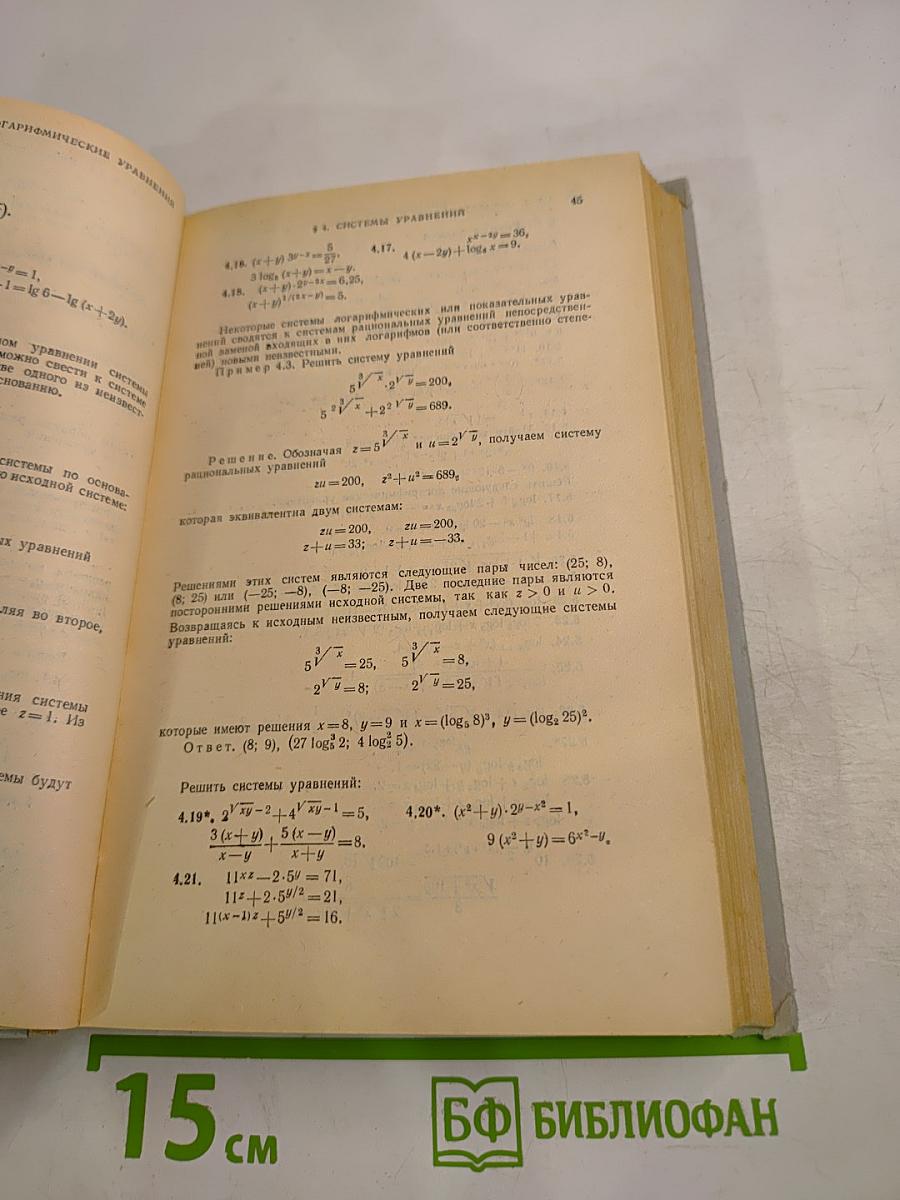 ОГАРИФМИЧЕСКИЕ УРАВНЕНИЯ
).
−y=1,
·1=lg 6−lg (x+2y).
ом уравнении системы
можно свести к системе
ве одного из неизвест-
снованию.
системы по основа-
ю исходной системе:
ых уравнений
ляя во второе,
ния системы
е z=1. Из
емы будут
§ 4. СИСТЕМЫ УРАВНЕНИЙ 45
4.16. (x+y) 3^{y−x}=5/27, 4.17. x^{x−2y}=36,
3 log₅ (x+y)=x−y. 4 (x−2y)+log₆ x=9.
4.18. (x+y)·2^{y−2x}=6,25,
(x+y)^{1/(2x−y)}=5.
Некоторые системы логарифмических или показательных урав-
нений сводятся к системам рациональных уравнений непосредствен-
ной заменой входящих в них логарифмов (или соответственно степе-
ней) новыми неизвестными.
Пример 4.3. Решить систему уравнений
5^{∛x}·2^{√y}=200,
5^{2∛x}+2^{2√y}=689.
Решение. Обозначая z=5^{∛x} и u=2^{√y}, получаем систему
рациональных уравнений
zu=200, z²+u²=689,
которая эквивалентна двум системам:
zu=200, zu=200,
z+u=33; z+u=−33.
Решениями этих систем являются следующие пары чисел: (25; 8),
(8; 25) или (−25; −8), (−8; −25). Две последние пары являются
посторонними решениями исходной системы, так как z > 0 и u > 0.
Возвращаясь к исходным неизвестным, получаем следующие системы
уравнений:
5^{∛x}=25, 5^{∛x}=8,
2^{√y}=8; 2^{√y}=25,
которые имеют решения x=8, y=9 и x=(log₅ 8)³, y=(log₂ 25)².
Ответ. (8; 9), (27 log₅³ 2; 4 log₂² 5).
Решить системы уравнений:
4.19*. 2^{√xy−2}+4^{√xy−1}=5, 4.20*. (x²+y)·2^{y−x²}=1,
3 (x+y)/(x−y)+5 (x−y)/(x+y)=8. 9 (x²+y)=6^{x²−y}.
4.21. 11^{xz}−2·5^{y}=71,
11^{z}+2·5^{y/2}=21,
11^{(x−1) z}+5^{y/2}=16.
15 см
БФ БИБЛИОФАН